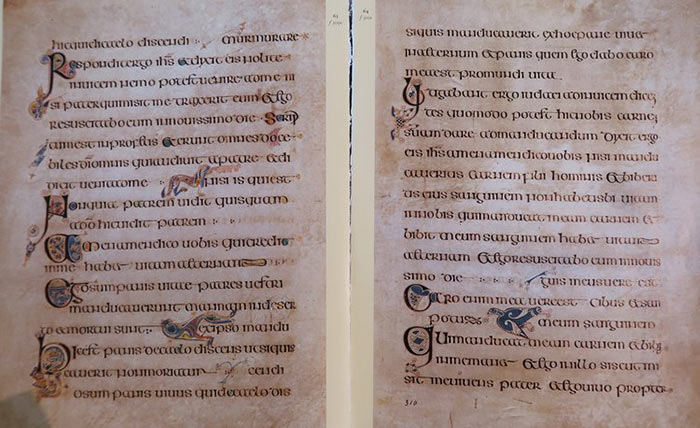 hicquidecaelo discendi murmurare
Respondit ergo ihs & dixit eis nolite
inuicem nemo potest uenire ad me ni
si pater qui misit me traxerit eum & ego
resuscitabo eum in nouissimo die Scrip
tum est in profetis & erunt omnes doce
biles di omnis qui audiuit a patre & di
dicit uenit ad me Nisi is qui est
Non quia patrem uidit quisquam
a do hic uidit patrem
Amen amen dico uobis qui credit
in me habet uitam aeternam
Ego sum panis uitae patres uestri
manducauerunt manna in deser
to & mortui sunt ex ipso mandu
Hic est panis de caelo discens ut si quis
cauerit non moriatur cendi
Ego sum panis uiuus qui de caelo dis
63
64
siquis manducauerit ex hoc pane uiuet
in aeternum & panis quem ego dabo caro
mea est pro mundi uita
Litigabant ergo iudaei ad inuicem dicen
tes quomodo potest hic nobis carnem
suam dare ad manducandum Dixit ergo
eis ihs amen amen dico uobis nisi mandu
caueritis carnem filii hominis & biberi
tis eius sanguinem non habebitis uitam
in uobis qui manducat meam carnem &
bibit meum sanguinem habet uitam
aeternam & ego resuscitabo eum in nouis
simo die guis meus uere est
Caro enim mea uere est cibus & san
potus meum sanguinem
Qui manducat meam carnem & bibit
in me manet & ego in illo sicut mi
sit me uiuens pater & ego uiuo propter
310